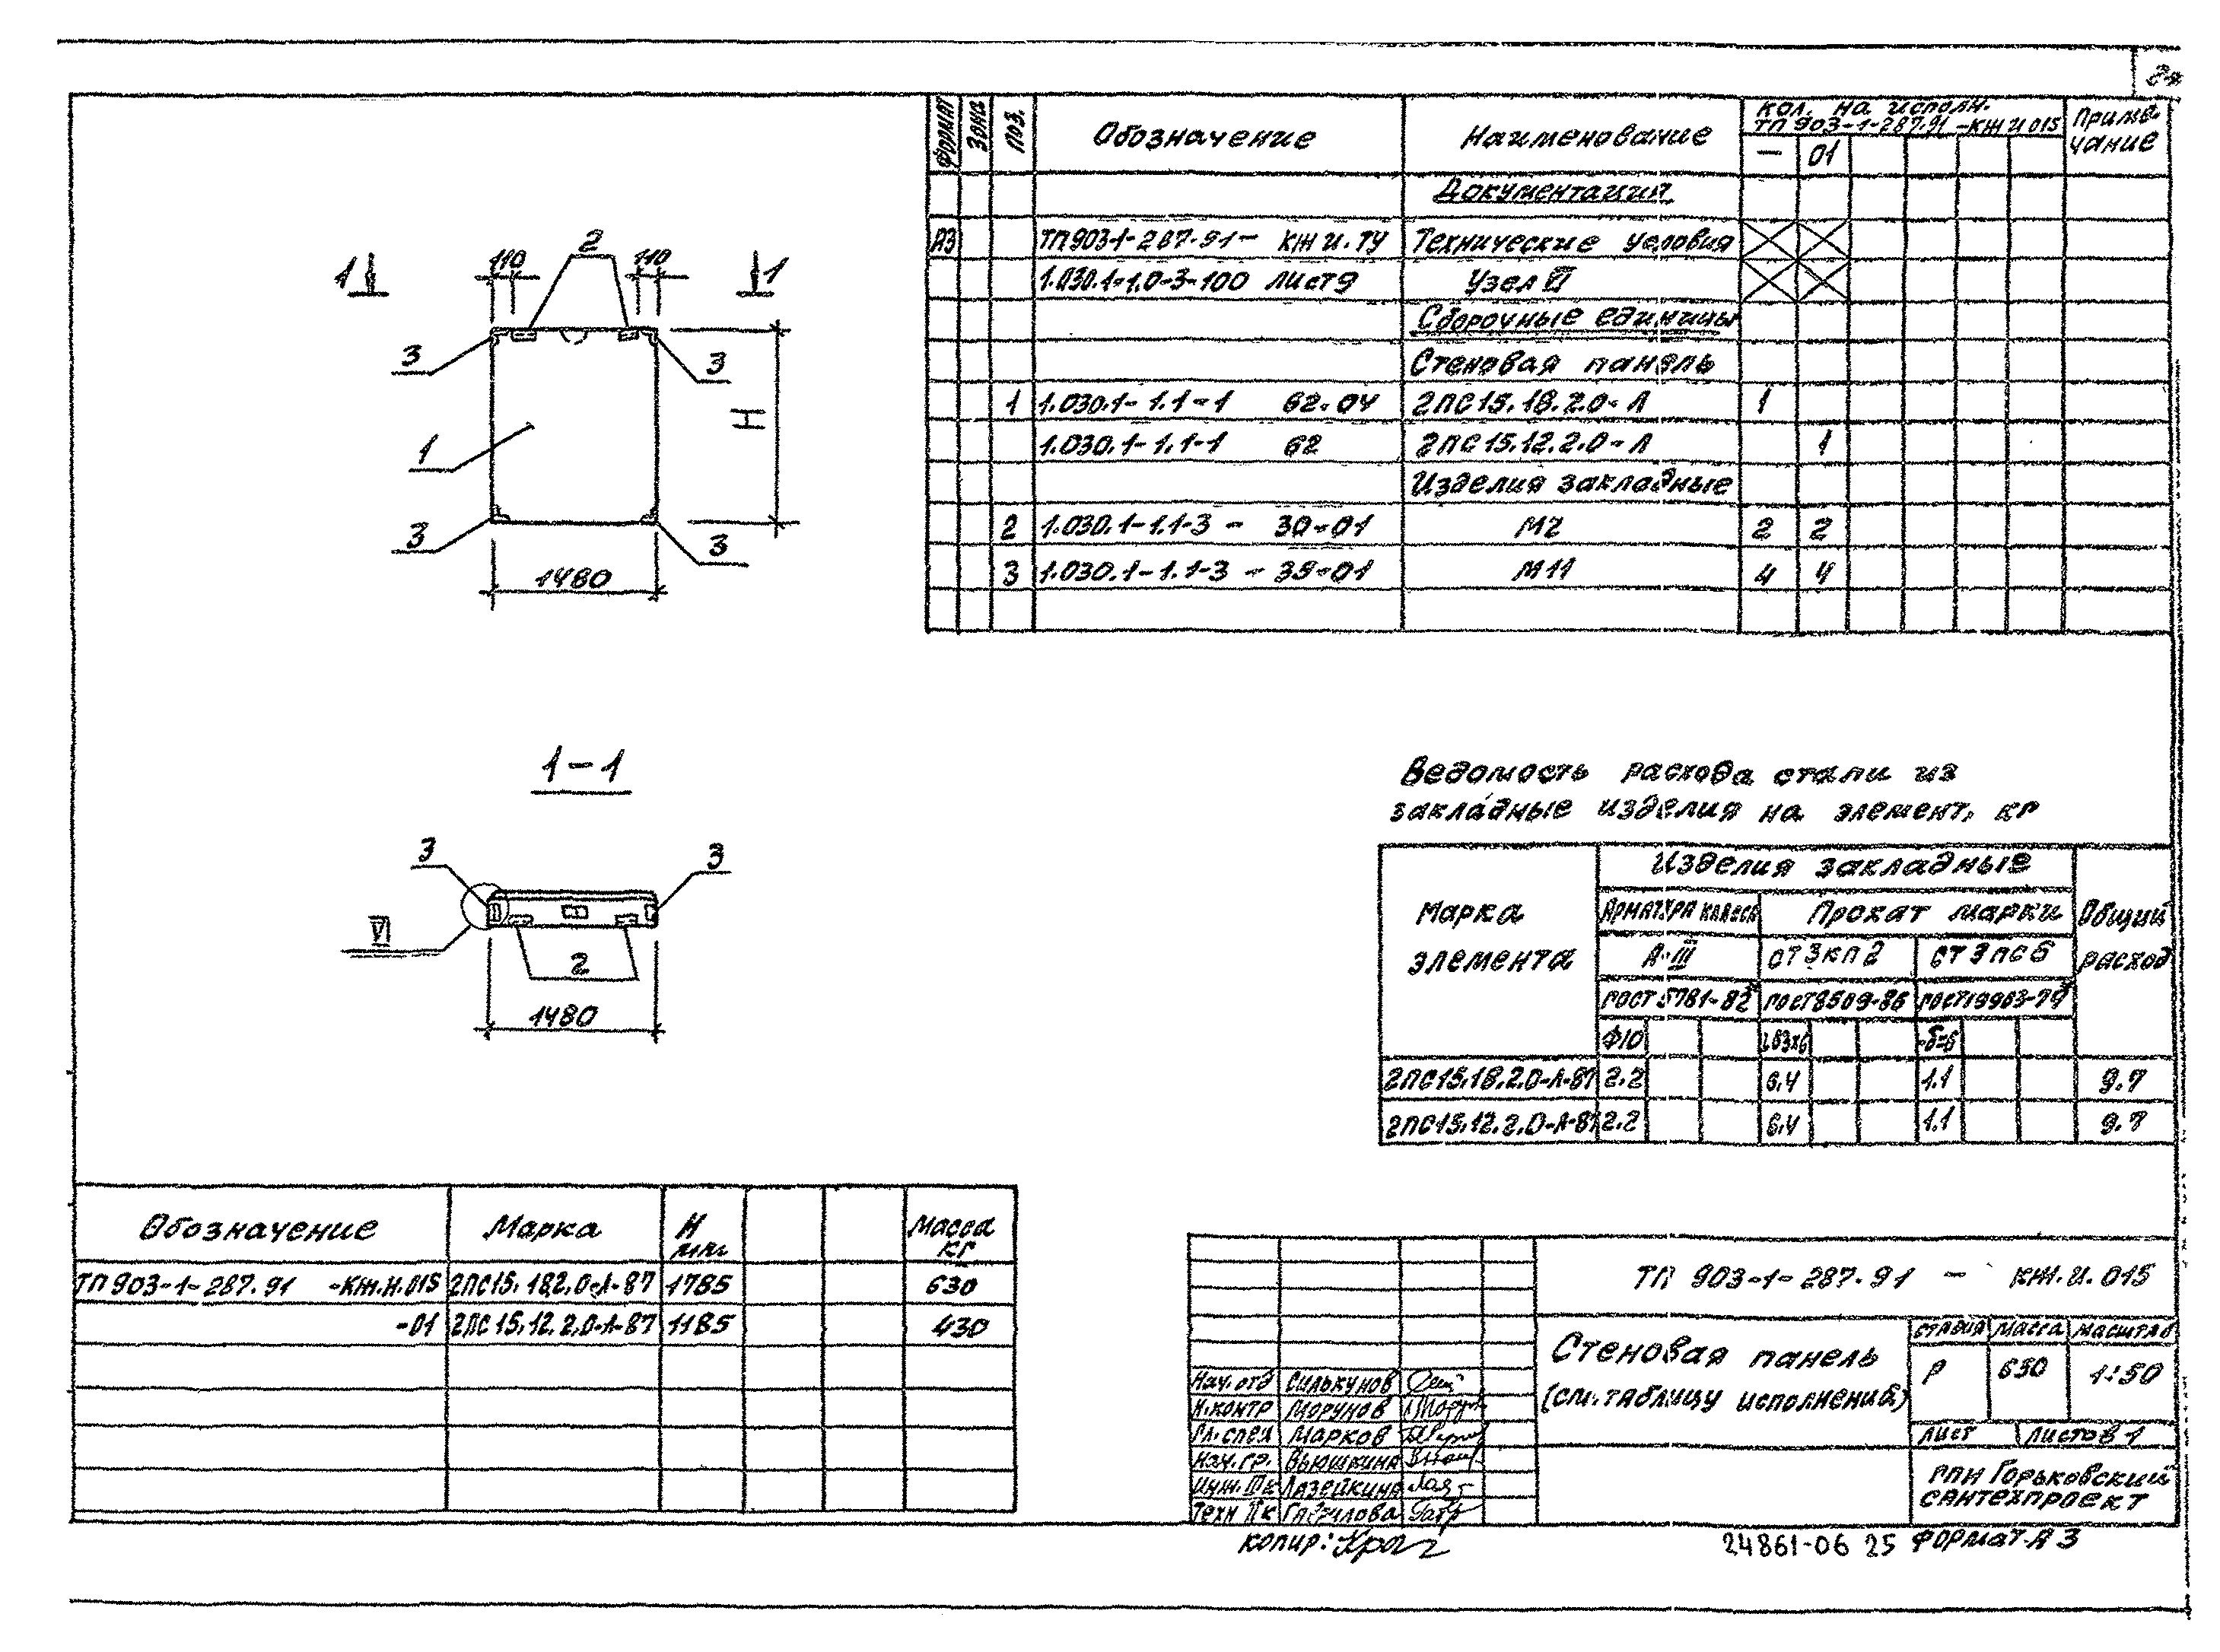 ФОРМАТ ЗОНА ПОЗ. Обозначение Наименование Кол. на исполн. Приме-
ТП 903-1-287.91 -КЖИ 015 чание
— 01
Документация
А3 ТП903-1-287.91- КЖИ.ТУ Технические условия
1.030.1-1.0-3-100 лист9 Узел VI
Сборочные единицы
Стеновая панель
1 1.030.1-1.1-1 62-04 2ПС15.18.2.0-Л 1
1.030.1-1.1-1 62 2ПС15.12.2.0-Л 1
Изделия закладные
2 1.030.1-1.1-3 - 30-01 М2 2 2
3 1.030.1-1.1-3 - 39-01 М11 4 4
2
1 110 110 1
3 3
H
1
3 3
1480
1-1
3 3
VI
2
1480
Ведомость расхода стали из
закладные изделия на элемент, кг
Марка
элемента
Изделия закладные
Арматура класса Прокат марки Общий
расход
А-III ст3кп2 ст3пс6
ГОСТ5781-82 ГОСТ8509-86 ГОСТ19903-74
Ф10 L63х6 -δ=6
2ПС15.18.2.0-Л-87 2.2 6.4 1.1 9.7
2ПС15.12.2.0-Л-87 2.2 6.4 1.1 9.7
Обозначение Марка H Масса
мм кг
ТП903-1-287.91 -КЖ.И.015 2ПС15.18.2.0-Л-87 1785 630
-01 2ПС15.12.2.0-Л-87 1185 430
ТП 903-1-287.91 — КЖ.И.015
Стеновая панель
(см. таблицу исполнений)
стадия масса масштаб
Р 630 1:50
лист листов 1
ГПИ Горьковский
сантехпроект
Нач.отд Силькунов
Н.контр Морунов
Гл.спец Марков
Нач.гр. Вьюшкина
Инж. IIк Лазейкина
Техн IIк Гаврилова
копир: 24861-06 25 Формат А3